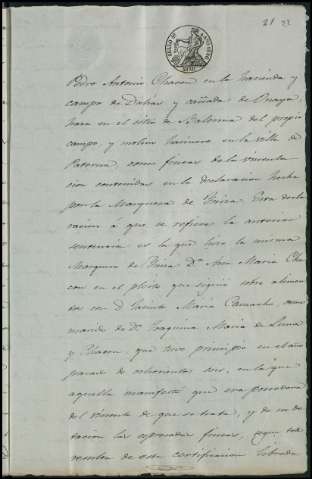 21 22
SELLO 4º AÑO
Pedro Antonio Chacon en la hacienda y
campo de Dalias y cañada de Onaya,
hasa en el sitio de Balerma del propio
campo, y molino harinero en la villa de
Paterna, como fincas de la vincula
cion contenidas en la declaracion hecha
por la Marquesa de Iniza. Esta decla
racion á que se refiere la anterior
sentencia es la que hizo la misma
Marquesa de Iniza Dª Ana Maria Cha
con en el pleito que siguió sobre alimen
tos con D. Maria Camacho, como
marido de Dª Joaquina Maria de Luna
y Chacon que tuvo principio en el año
pasado de ochocientos seis, en la que
aquella manifestó que era poseedora
del vinculo de que se trata, y de su do
tacion las espresadas fincas,
de esta certificacion librada